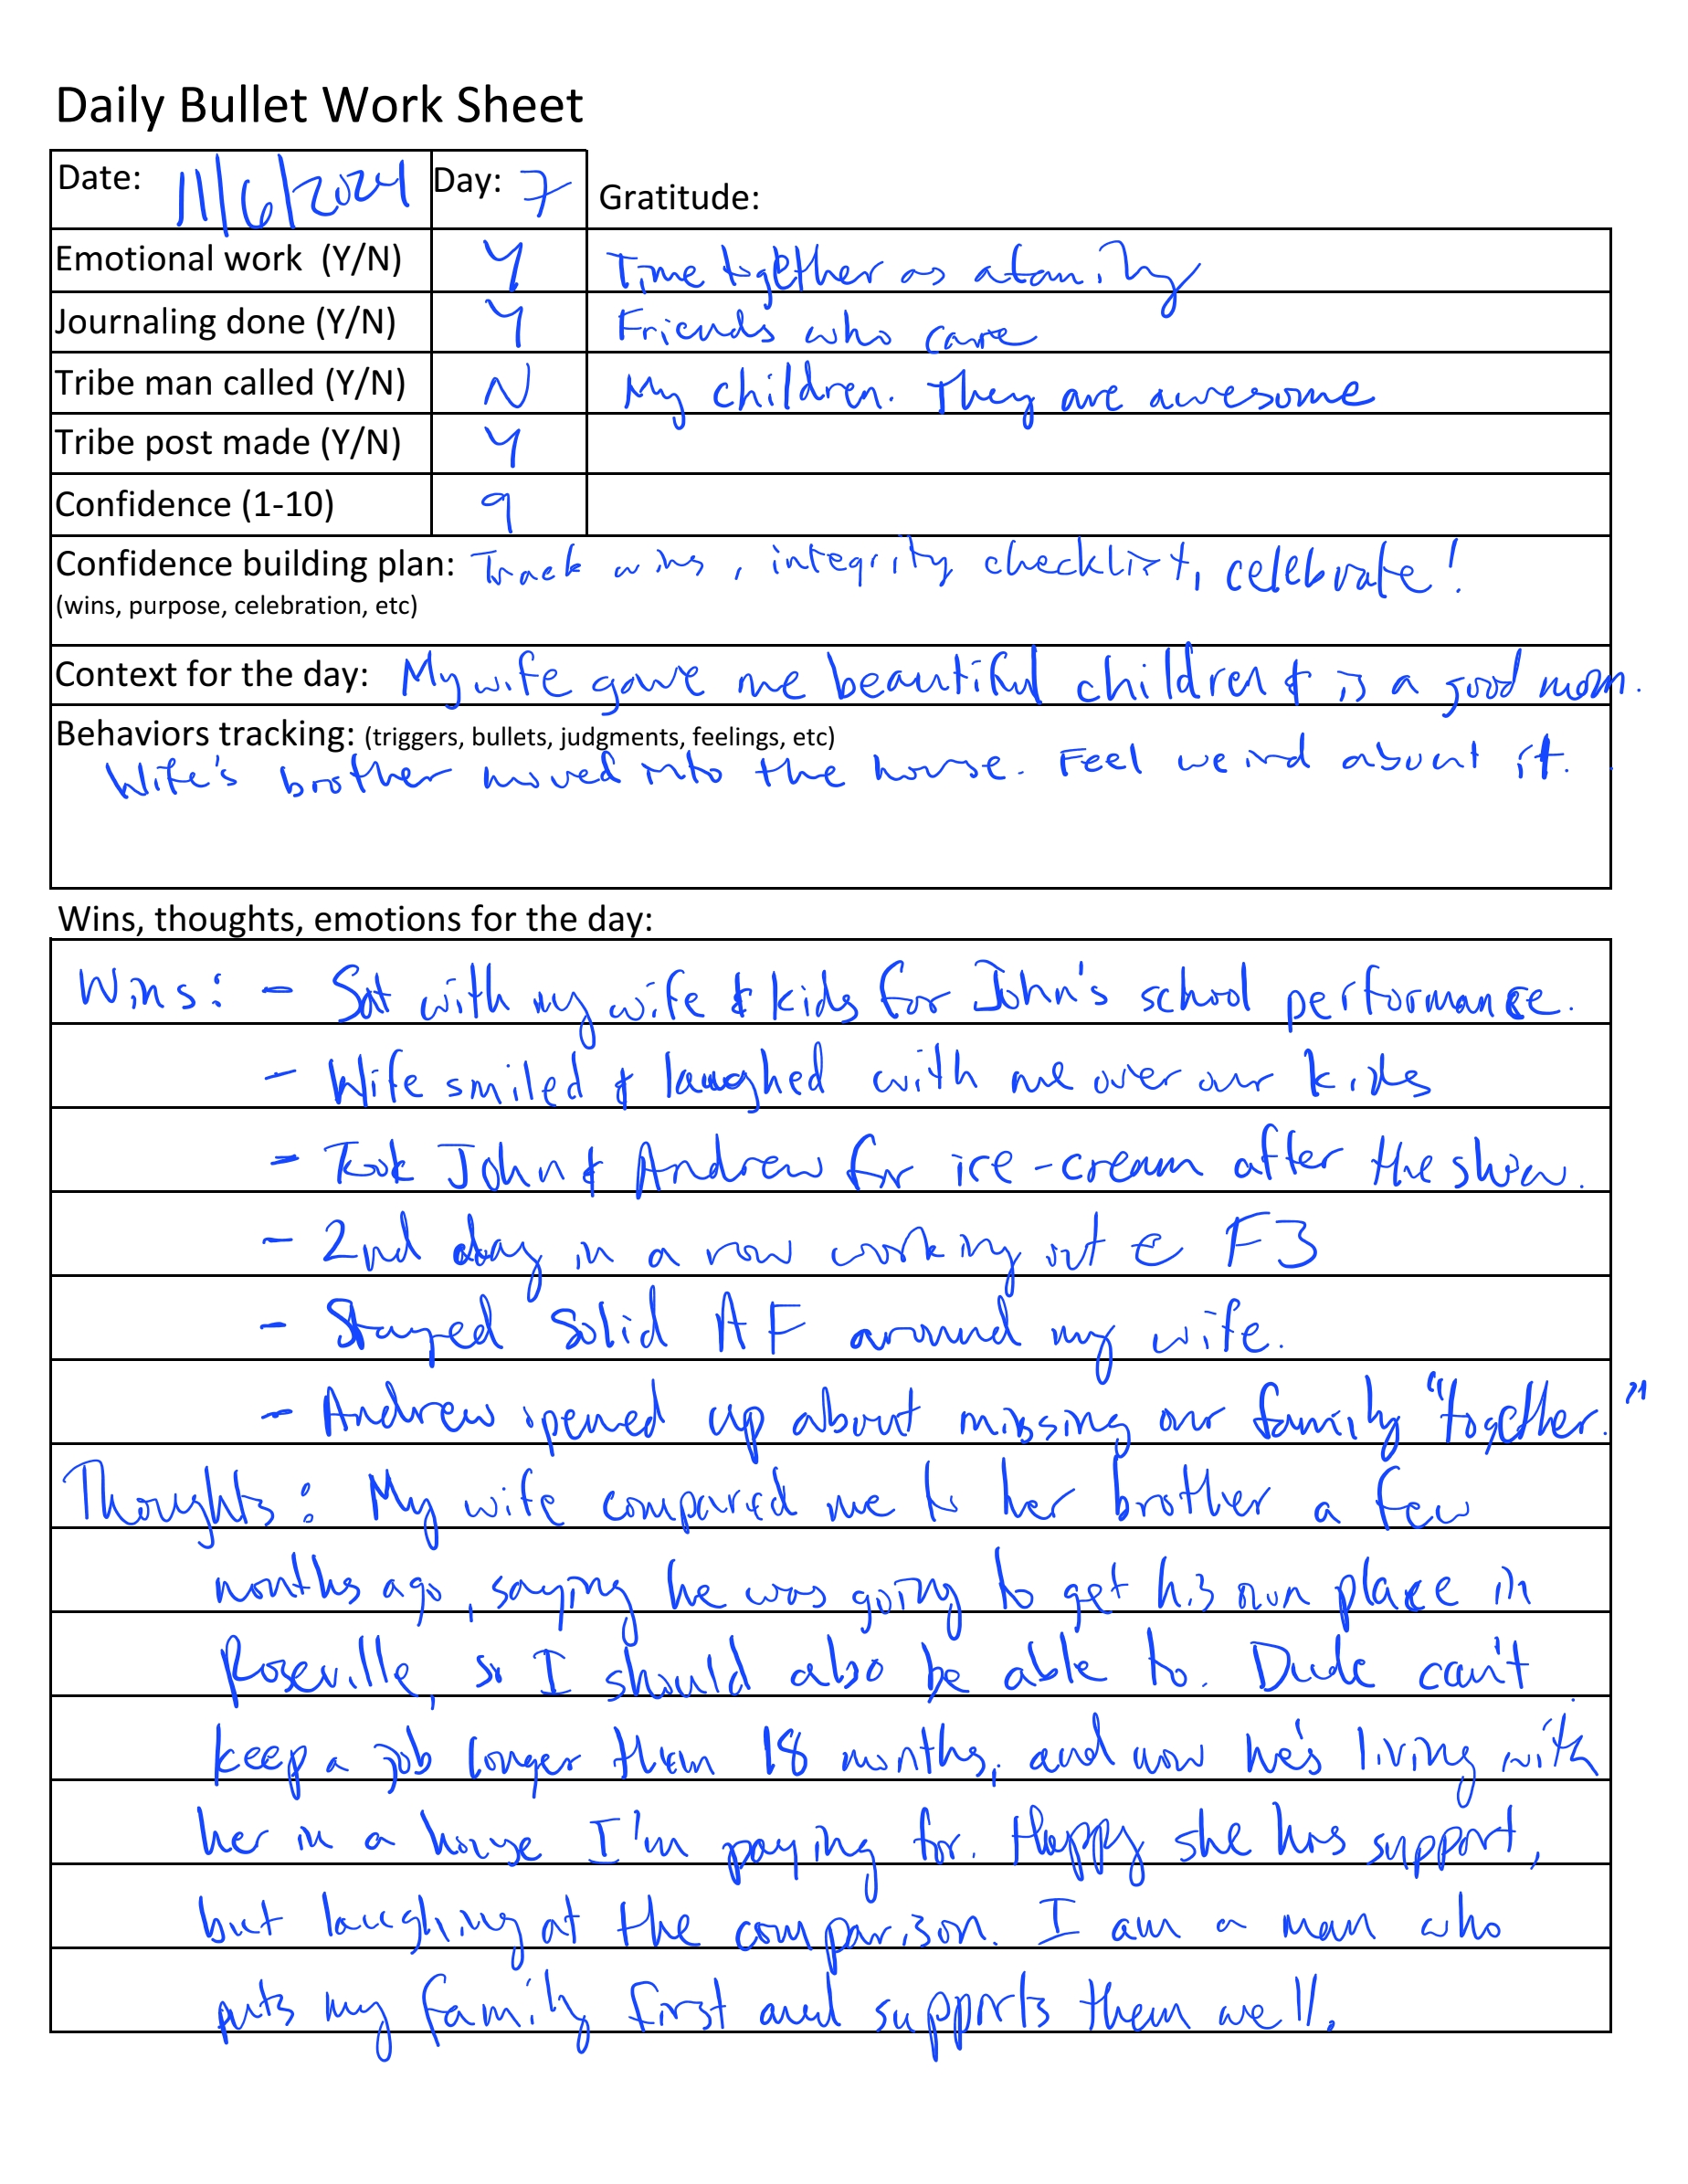 Daily Bullet Work Sheet
Date: 11/6/2024 Day: 7 Gratitude:
Emotional work (Y/N) Y Time together as a family
Journaling done (Y/N) Y Friends who care
Tribe man called (Y/N) N My children. They are awesome
Tribe post made (Y/N) Y
Confidence (1-10) 9
Confidence building plan: Track wins, integrity checklist, celebrate!
(wins, purpose, celebration, etc)
Context for the day: My wife gave me beautiful children & is a good mom.
Behaviors tracking: (triggers, bullets, judgments, feelings, etc)
Wife's brother moved into the house. Feel weird about it.
Wins, thoughts, emotions for the day:
Wins: - Sat with my wife & kids for John's school performance.
- Wife smiled & laughed with me over our kids
- Took John & Andrew for ice-cream after the show.
- 2nd day in a row working out @ F3
- Stayed Solid AF around my wife.
- Andrew opened up about missing our family "together."
Thoughts: My wife compared me to her brother a few
months ago, saying he was going to get his own place in
Roseville, so I should also be able to. Dude can't
keep a job longer than 18 months, and now he's living with
her in a house I'm paying for. Happy she has support,
but laughing at the comparison. I am a man who
puts my family first and supports them well.